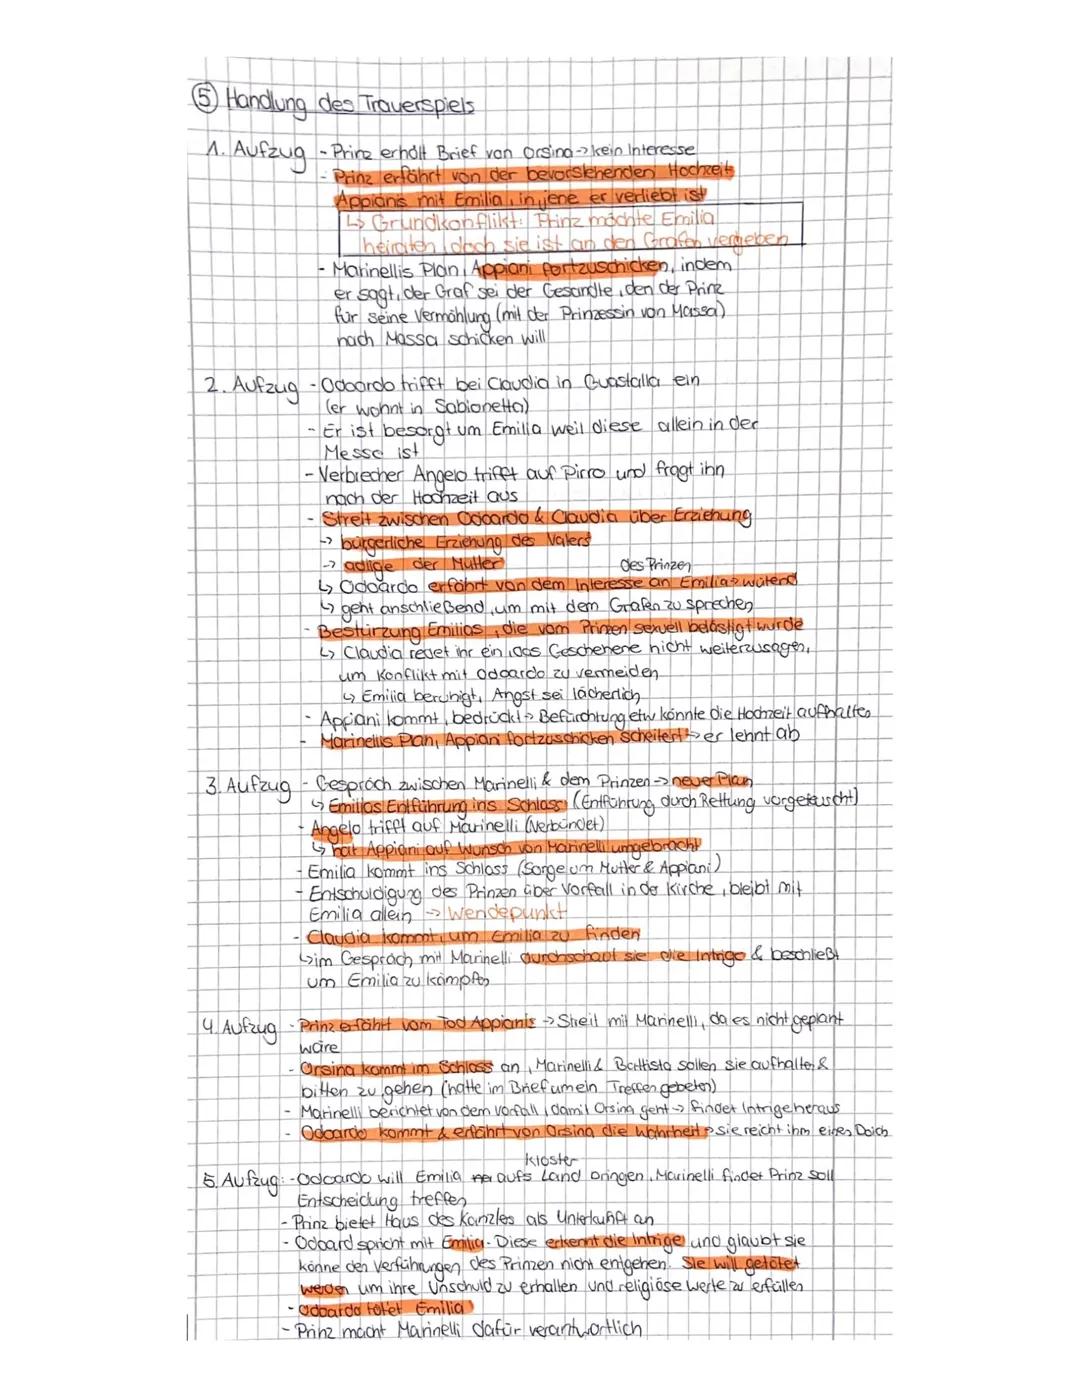 ⑤ Handlung des Trauerspiels
1. Aufzug - Prinz erhält Brief von Orsina -> kein Interesse
- Prinz erfährt von der bevorstehenden Hochzeit
Appianis mit Emilia, in jene er verliebt ist
↳ Grundkonflikt: Prinz möchte Emilia
heiraten, doch sie ist an den Grafen vergeben
- Marinellis Plan, Appiani fortzuschicken, indem
er sagt, der Graf sei der Gesandte, den der Prinz
für seine Vermählung (mit der Prinzessin von Massa)
nach Massa schicken will
2. Aufzug - Odoardo trifft bei Claudia in Guastalla ein
(er wohnt in Sabionetta)
- Er ist besorgt um Emilia weil diese allein in der
Messe ist
- Verbrecher Angelo trifft auf Pirro und fragt ihn
nach der Hochzeit aus
- Streit zwischen Odoardo & Claudia über Erziehung
-> bürgerliche Erziehung des Vaters
-> adlige der Mutter
des Prinzen
↳ Odoardo erfährt von dem Interesse an Emilia -> wütend
↳ geht anschließend, um mit dem Grafen zu sprechen
- Bestürzung Emilias, die vom Prinzen sexuell belästigt wurde
↳ Claudia redet ihr ein, das Geschehene nicht weiterzusagen,
um Konflikt mit Odoardo zu vermeiden
↳ Emilia beruhigt, Angst sei lächerlich
- Appiani kommt, bedrückt -> Befürchtung etw könnte die Hochzeit aufhalten
- Marinellis Plan, Appiani fortzuschicken scheitert -> er lehnt ab
3. Aufzug - Gespräch zwischen Marinelli & dem Prinzen -> neuer Plan
↳ Emilias Entführung ins Schloss (Entführung durch Rettung vorgetäuscht)
- Angelo trifft auf Marinelli (Verbündet)
↳ hat Appiani auf Wunsch von Marinelli umgebracht
- Emilia kommt ins Schloss (Sorge um Mutter & Appiani)
- Entschuldigung des Prinzen über Vorfall in der Kirche, bleibt mit
Emilia allein -> Wendepunkt
- Claudia kommt, um Emilia zu finden
↳ im Gespräch mit Marinelli durchschaut sie die Intrige & beschließt
um Emilia zu kämpfen
4. Aufzug - Prinz erfährt vom Tod Appianis -> Streit mit Marinelli, da es nicht geplant
wäre
- Orsina kommt im Schloss an, Marinelli & Battista sollen sie aufhalten &
bitten zu gehen (hatte im Brief um ein Treffen gebeten)
- Marinelli berichtet von dem Vorfall, damit Orsina geht -> findet Intrige heraus
- Odoardo kommt & erfährt von Orsina die Wahrheit -> sie reicht ihm einen Dolch
Kloster
5. Aufzug: - Odoardo will Emilia aufs Land bringen, Marinelli findet Prinz soll
Entscheidung treffen
- Prinz bietet Haus des Kanzlers als Unterkunft an
- Odoard spricht mit Emilia. Diese erkennt die Intrige und glaubt sie
könne den Verführungen des Prinzen nicht entgehen. Sie will getötet
werden um ihre Unschuld zu erhalten und religiöse Werte zu erfüllen
- Odoardo tötet Emilia
- Prinz macht Marinelli dafür verantwortlich